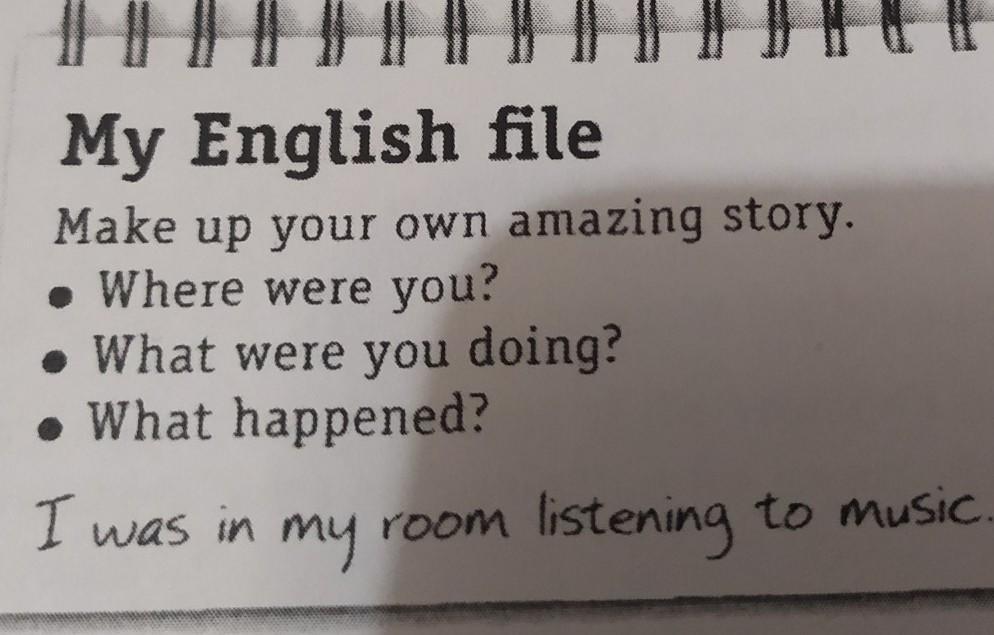 My English file
Make up your own amazing story.
• Where were you?
• What were you doing?
• What happened?
I was in my room listening to music.